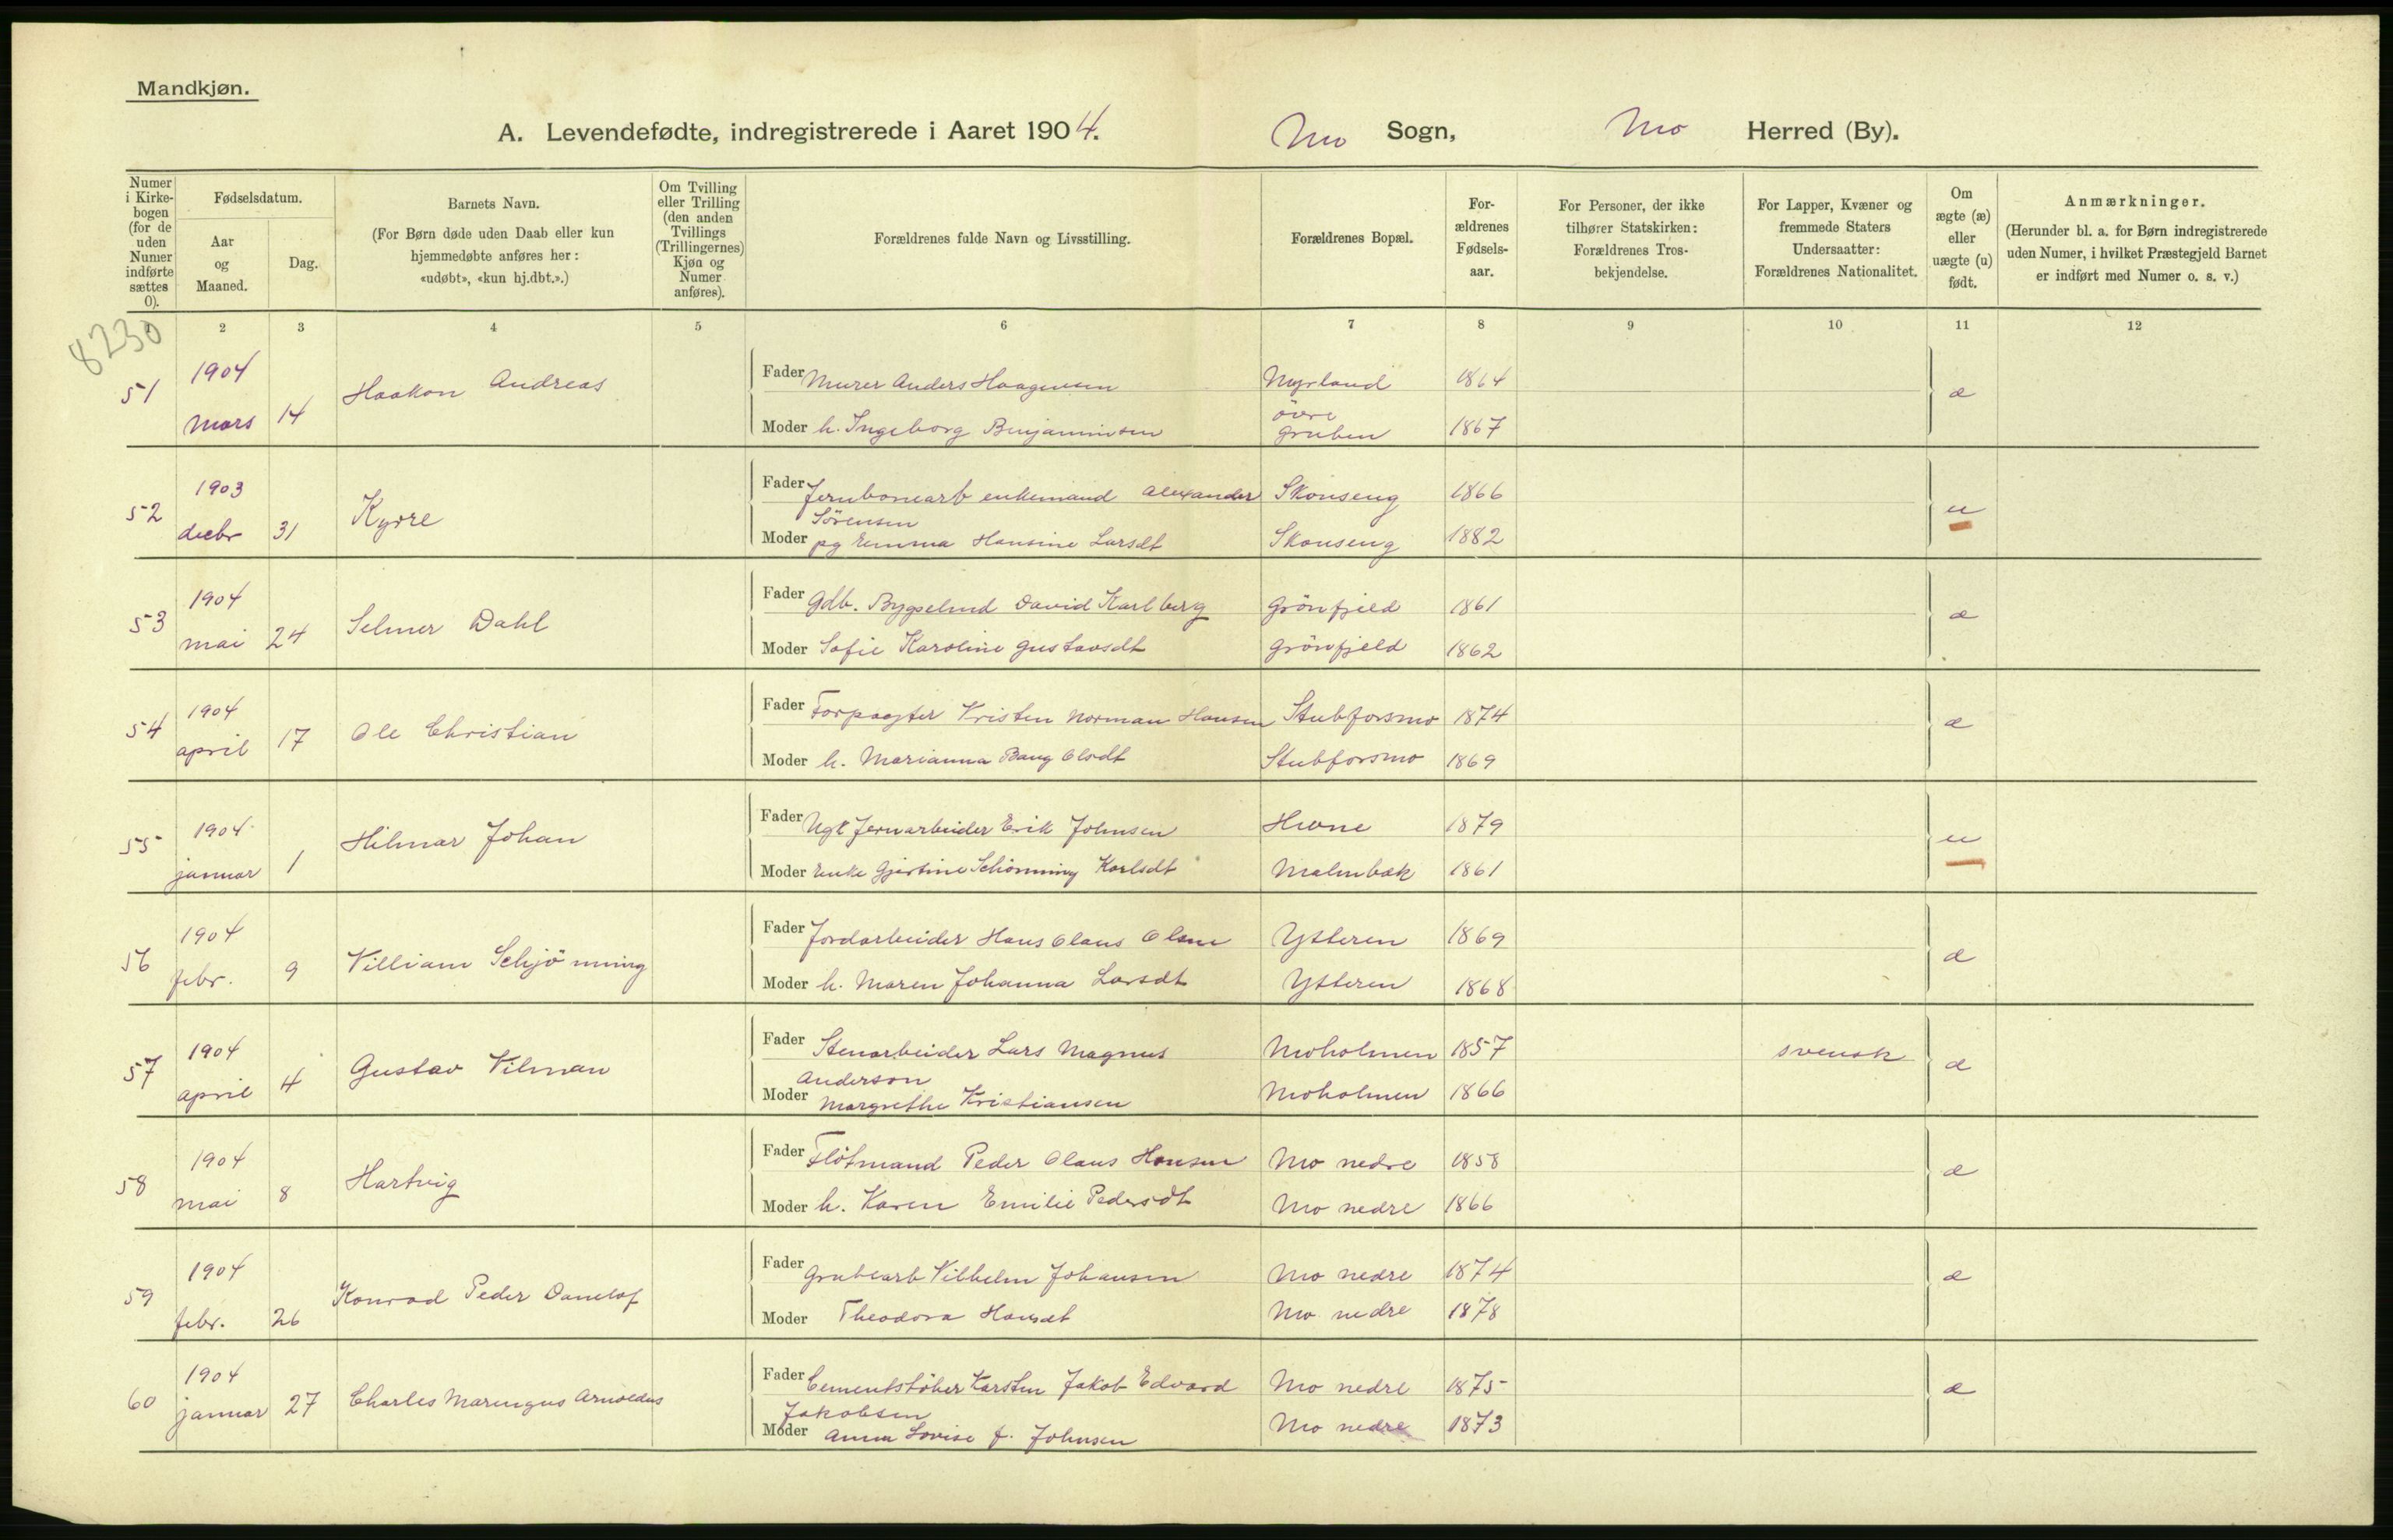 Mandkjøn.
A. Levendefødte, indregistrerede i Aaret 1904. Mo Sogn, Mo Herred (By).
Numer i Kirkebogen (for de uden Numer indførte sættes 0).
Fødselsdatum.
Aar og Maaned.
Dag.
Barnets Navn.
(For Børn døde uden Daab eller kun hjemmedøbte anføres her: «udøbt», «kun hj.dbt.».)
Om Tvilling eller Trilling (den anden Tvillings (Trillingernes) Kjøn og Numer anføres).
Forældrenes fulde Navn og Livsstilling.
Forældrenes Bopæl.
Forældrenes Fødselsaar.
For Personer, der ikke tilhører Statskirken: Forældrenes Trosbekjendelse.
For Lapper, Kvæner og fremmede Staters Undersaatter: Forældrenes Nationalitet.
Om ægte (æ) eller uægte (u) født.
Anmærkninger.
(Herunder bl. a. for Børn indregistrerede uden Numer, i hvilket Præstegjeld Barnet er indført med Numer o. s. v.)
8230
2 3 4 5 6 7 8 9 10 11 12
51 1904 mars 14 Haakon Andreas
Fader Murer Anders Haagensen Nyrland 1864 æ
Moder h. Ingeborg Benjaminsen övre Gruben 1867
52 1903 decbr 31 Kyrre
Fader Jernbanearb enkemand Alexander Sörensen Skonseng 1866 u
Moder pg Emma Hansine Larsdt Skonseng 1882
53 1904 mai 24 Selmer Dahl
Fader Gdb. Bygselmd David Karlberg Grönfjeld 1861 æ
Moder Sofie Karoline Gustavsdt Grönfjeld 1862
54 1904 april 17 Ole Christian
Fader Forpagter Kristen Norman Hansen Stubforsmo 1874 æ
Moder h. Marianna Bang Olsdt Stubforsmo 1869
55 1904 januar 1 Hilmar Johan
Fader Ugt Jernarbeider Erik Johnsen 1879 u
Moder Enke Gjertine Schönning Karlsdt Malmbæk 1861
56 1904 febr. 9 Villiam Schjönning
Fader Jordarbeider Hans Olaus Olsen Ytteren 1869 æ
Moder h. Maren Johanna Larsdt Ytteren 1868
57 1904 april 4 Gustav Vilman
Fader Stenarbeider Lars Magnus Anderson Moholmen 1857 svensk æ
Moder Margrethe Kristiansen Moholmen 1866
58 1904 mai 8 Hartvig
Fader Flötmand Peder Olaus Hansen Mo nedre 1858 æ
Moder h. Karen Emilie Pedersdt Mo nedre 1866
59 1904 febr. 26 Konrad Peder Danelof
Fader Grubearb Vilhelm Johansen Mo nedre 1874 æ
Moder Theodora Hansdt Mo nedre 1878
60 1904 januar 27 Charles Arnoldus
Fader Cementstöber Karsten Jakob Edvard Jakobsen Mo nedre 1875 æ
Moder Anna Lovise f. Johnsen Mo nedre 1873